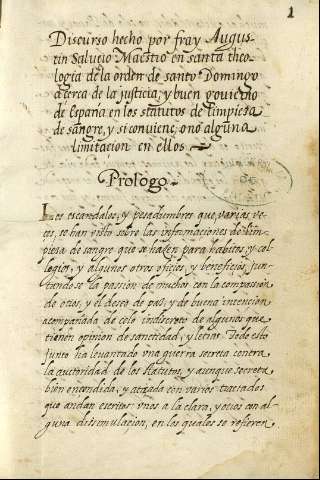 1
Discurso hecho por fray Augus-
tin Salucio Maestro en santa theo-
logia de la orden de santo Domingo
a cerca de la justicia, y buen govierno
de España en los statutos de limpieza
de sangre, y si conviene, o no alguna
limitacion en ellos
Prologo.
Los escandalos, y pesadumbres que varias ve-
ces, se han visto sobre las informaciones de lim-
pieza de sangre que se hazen para habitos, y col-
legios, y algunos otros oficios, y beneficios, jun-
tandose la passion de muchos con la compassion
de otros, y el deseo de paz, y de buena intencion
acompañada de celo indiscreto de algunos que
tienen opinion de sanctidad, y letras. Todo esto
junto ha levantado una guerra secreta contra
la auctoridad de los statutos, y aunque secreta
bien encendida, y atizada con varios tractados
que andan escritos unos a la clara, y otros con al-
guna dissimulacion, en los quales se refieren